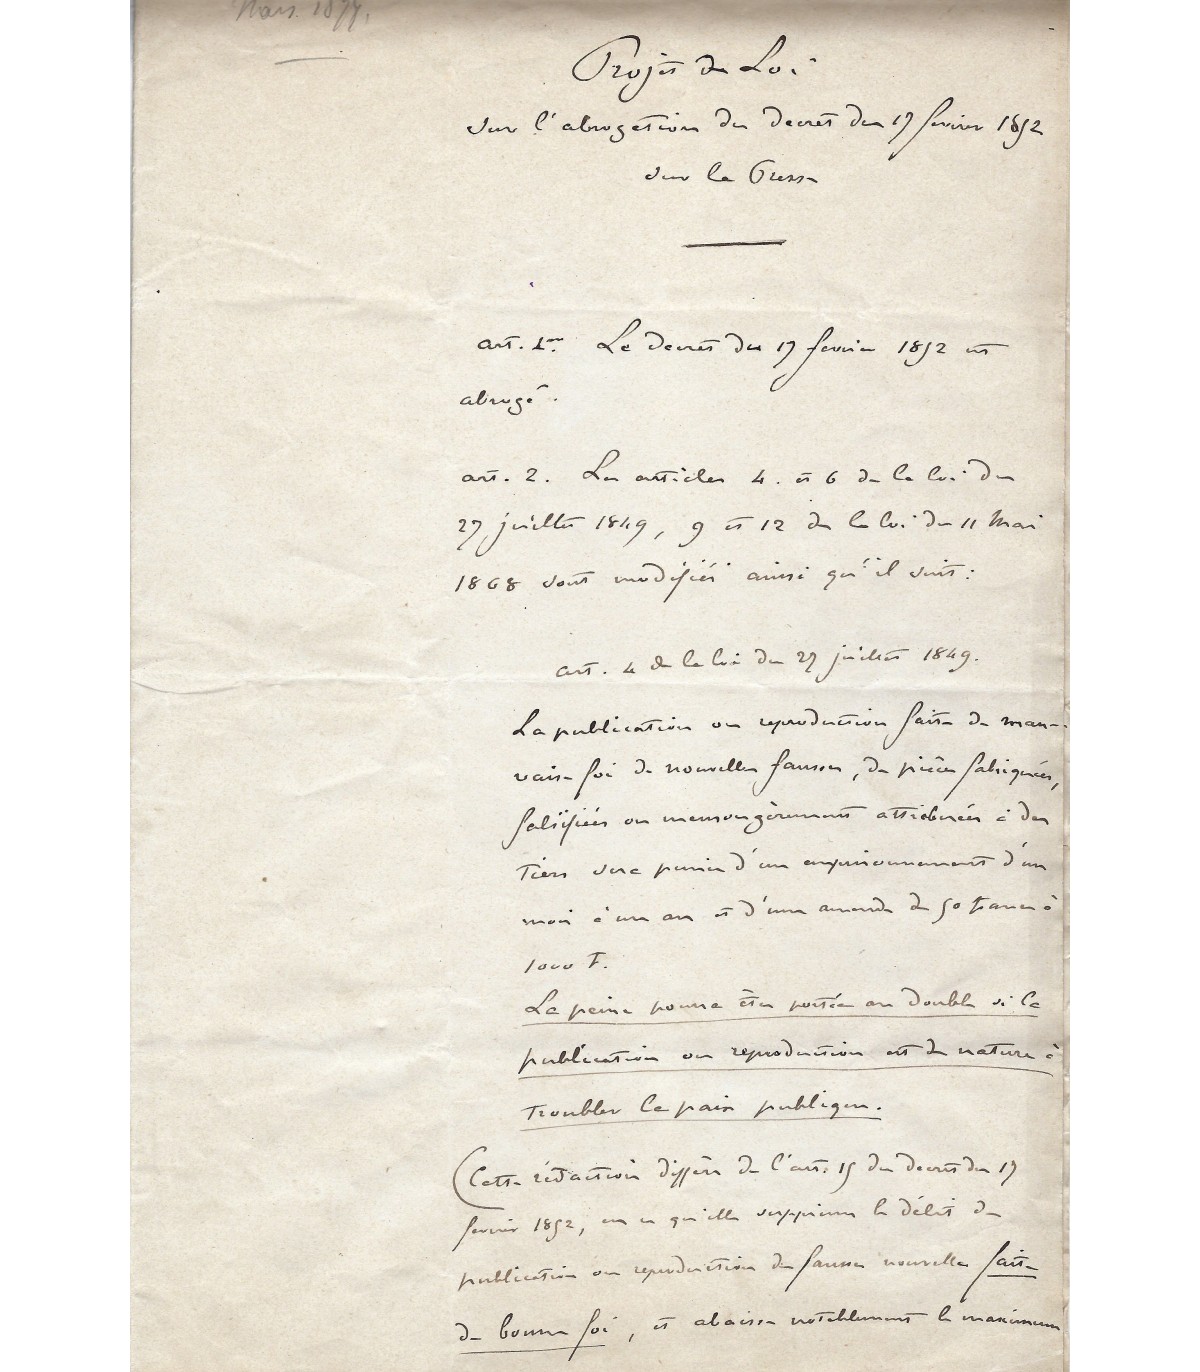 Mars 1877.
Projet de Loi
sur l'abrogation du decret du 17 fevrier 1852
sur la Presse
art. 1er. Le decret du 17 fevrier 1852 est
abrogé.
art. 2. Les articles 4. et 6 de la loi du
27 juillet 1849, 9 et 12 de la loi du 11 Mai
1868 sont modifiés ainsi qu'il suit :
art. 4 de la loi du 27 juillet 1849.
La publication ou reproduction faite de mau-
vaise foi de nouvelles fausses, de pièces fabriquées,
falsifiées ou mensongèrement attribuées à des
tiers sera punie d'un emprisonnement d'un
mois à un an et d'une amende de 50 francs à
1000 F.
La peine pourra être portée au double si la
publication ou reproduction est de nature à
troubler la paix publique.
(Cette rédaction diffère de l'art. 15 du decret du 17
fevrier 1852, en ce qu'elle supprime le délit de
publication ou reproduction de fausses nouvelles faite
de bonne foi, et abaisse notablement le maximum